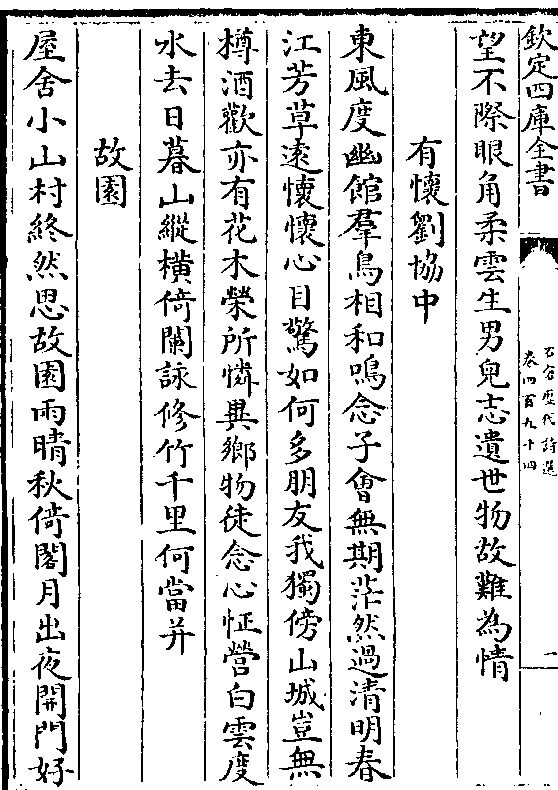 欽定四庫全書
石倉歷代詩選
卷四百九十四
一
望不際眼角柔雲生男兒志遺世物故難為情
有懷劉協中
東風度幽館羣鳥相和鳴念子會無期茫然過清明春
江芳草遠懷懷心目驚如何多朋友我獨傍山城豈無
樽酒歡亦有花木榮所憐異鄉物徒念心怔營白雲度
水去日暮山縱橫倚闌詠修竹千里何當并
故園
屋舍小山村終然思故園雨晴秋倚閣月出夜開門好